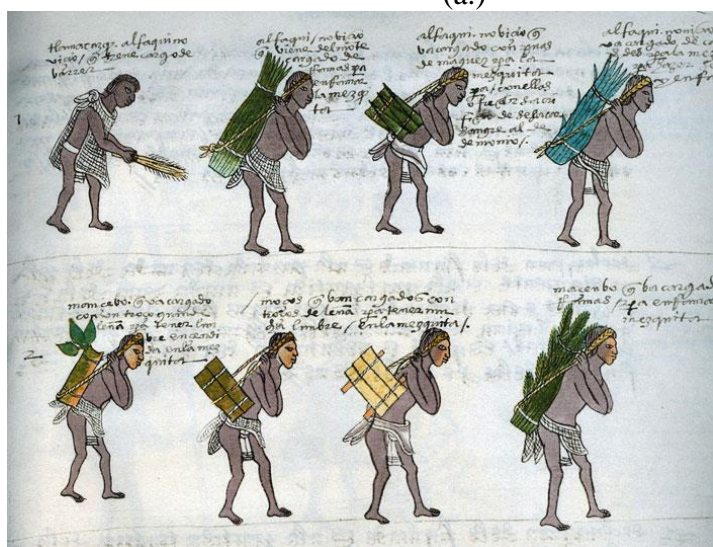 (a.)
tlamacazqz. alfaqui no
vicio / q tiene cargo de
varrer
alfaqui / novicio q
viene del mõte
cargado de
rramas pa
enrramar
la mezq
ta
alfaqui novicio q
va cargado con puas
de maguez pa la
mezquita
pa / con ellas
ofreçer
sacar
sangre al de
monio /.
alfaqui. novicio q
va cargado de ca
pa la mez
1
mancebo. q va cargado
con un troço grande
leña pa tener lun
bre ençendi
da en la mez
quita
/ moços q van cargados con
troços de leña pa tener mu
cha lumbre / en la mezquita /.
mancebo q va cargad
rramas / pa enrramar
mezquita
2